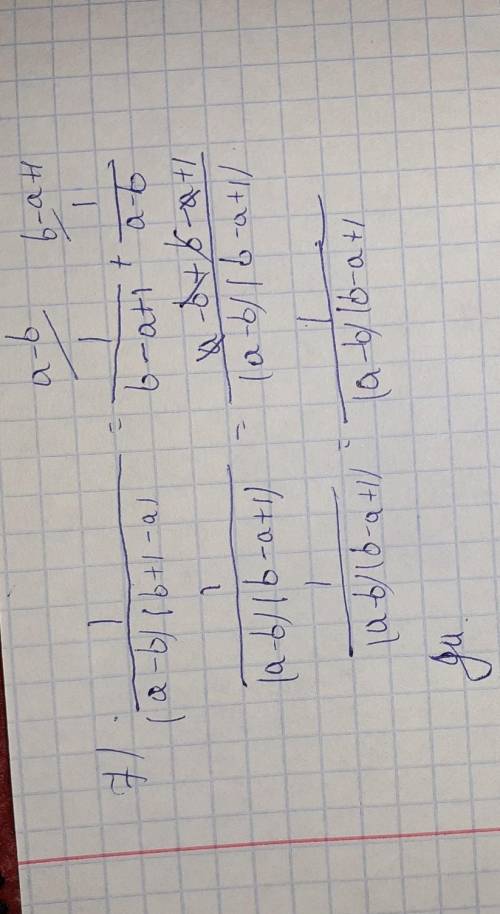 a-b/ b-a+1/
7) 1/((a-b)(b+1-a)) = 1/(b-a+1) + 1/(a-b)
1/((a-b)(b-a+1)) = (a-b+b-a+1)/((a-b)(b-a+1))
1/((a-b)(b-a+1)) = 1/((a-b)(b-a+1)